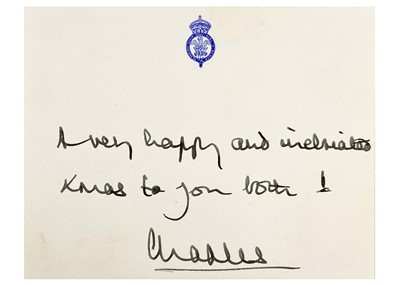 A very happy and inebriated
Xmas to you both !
Charles